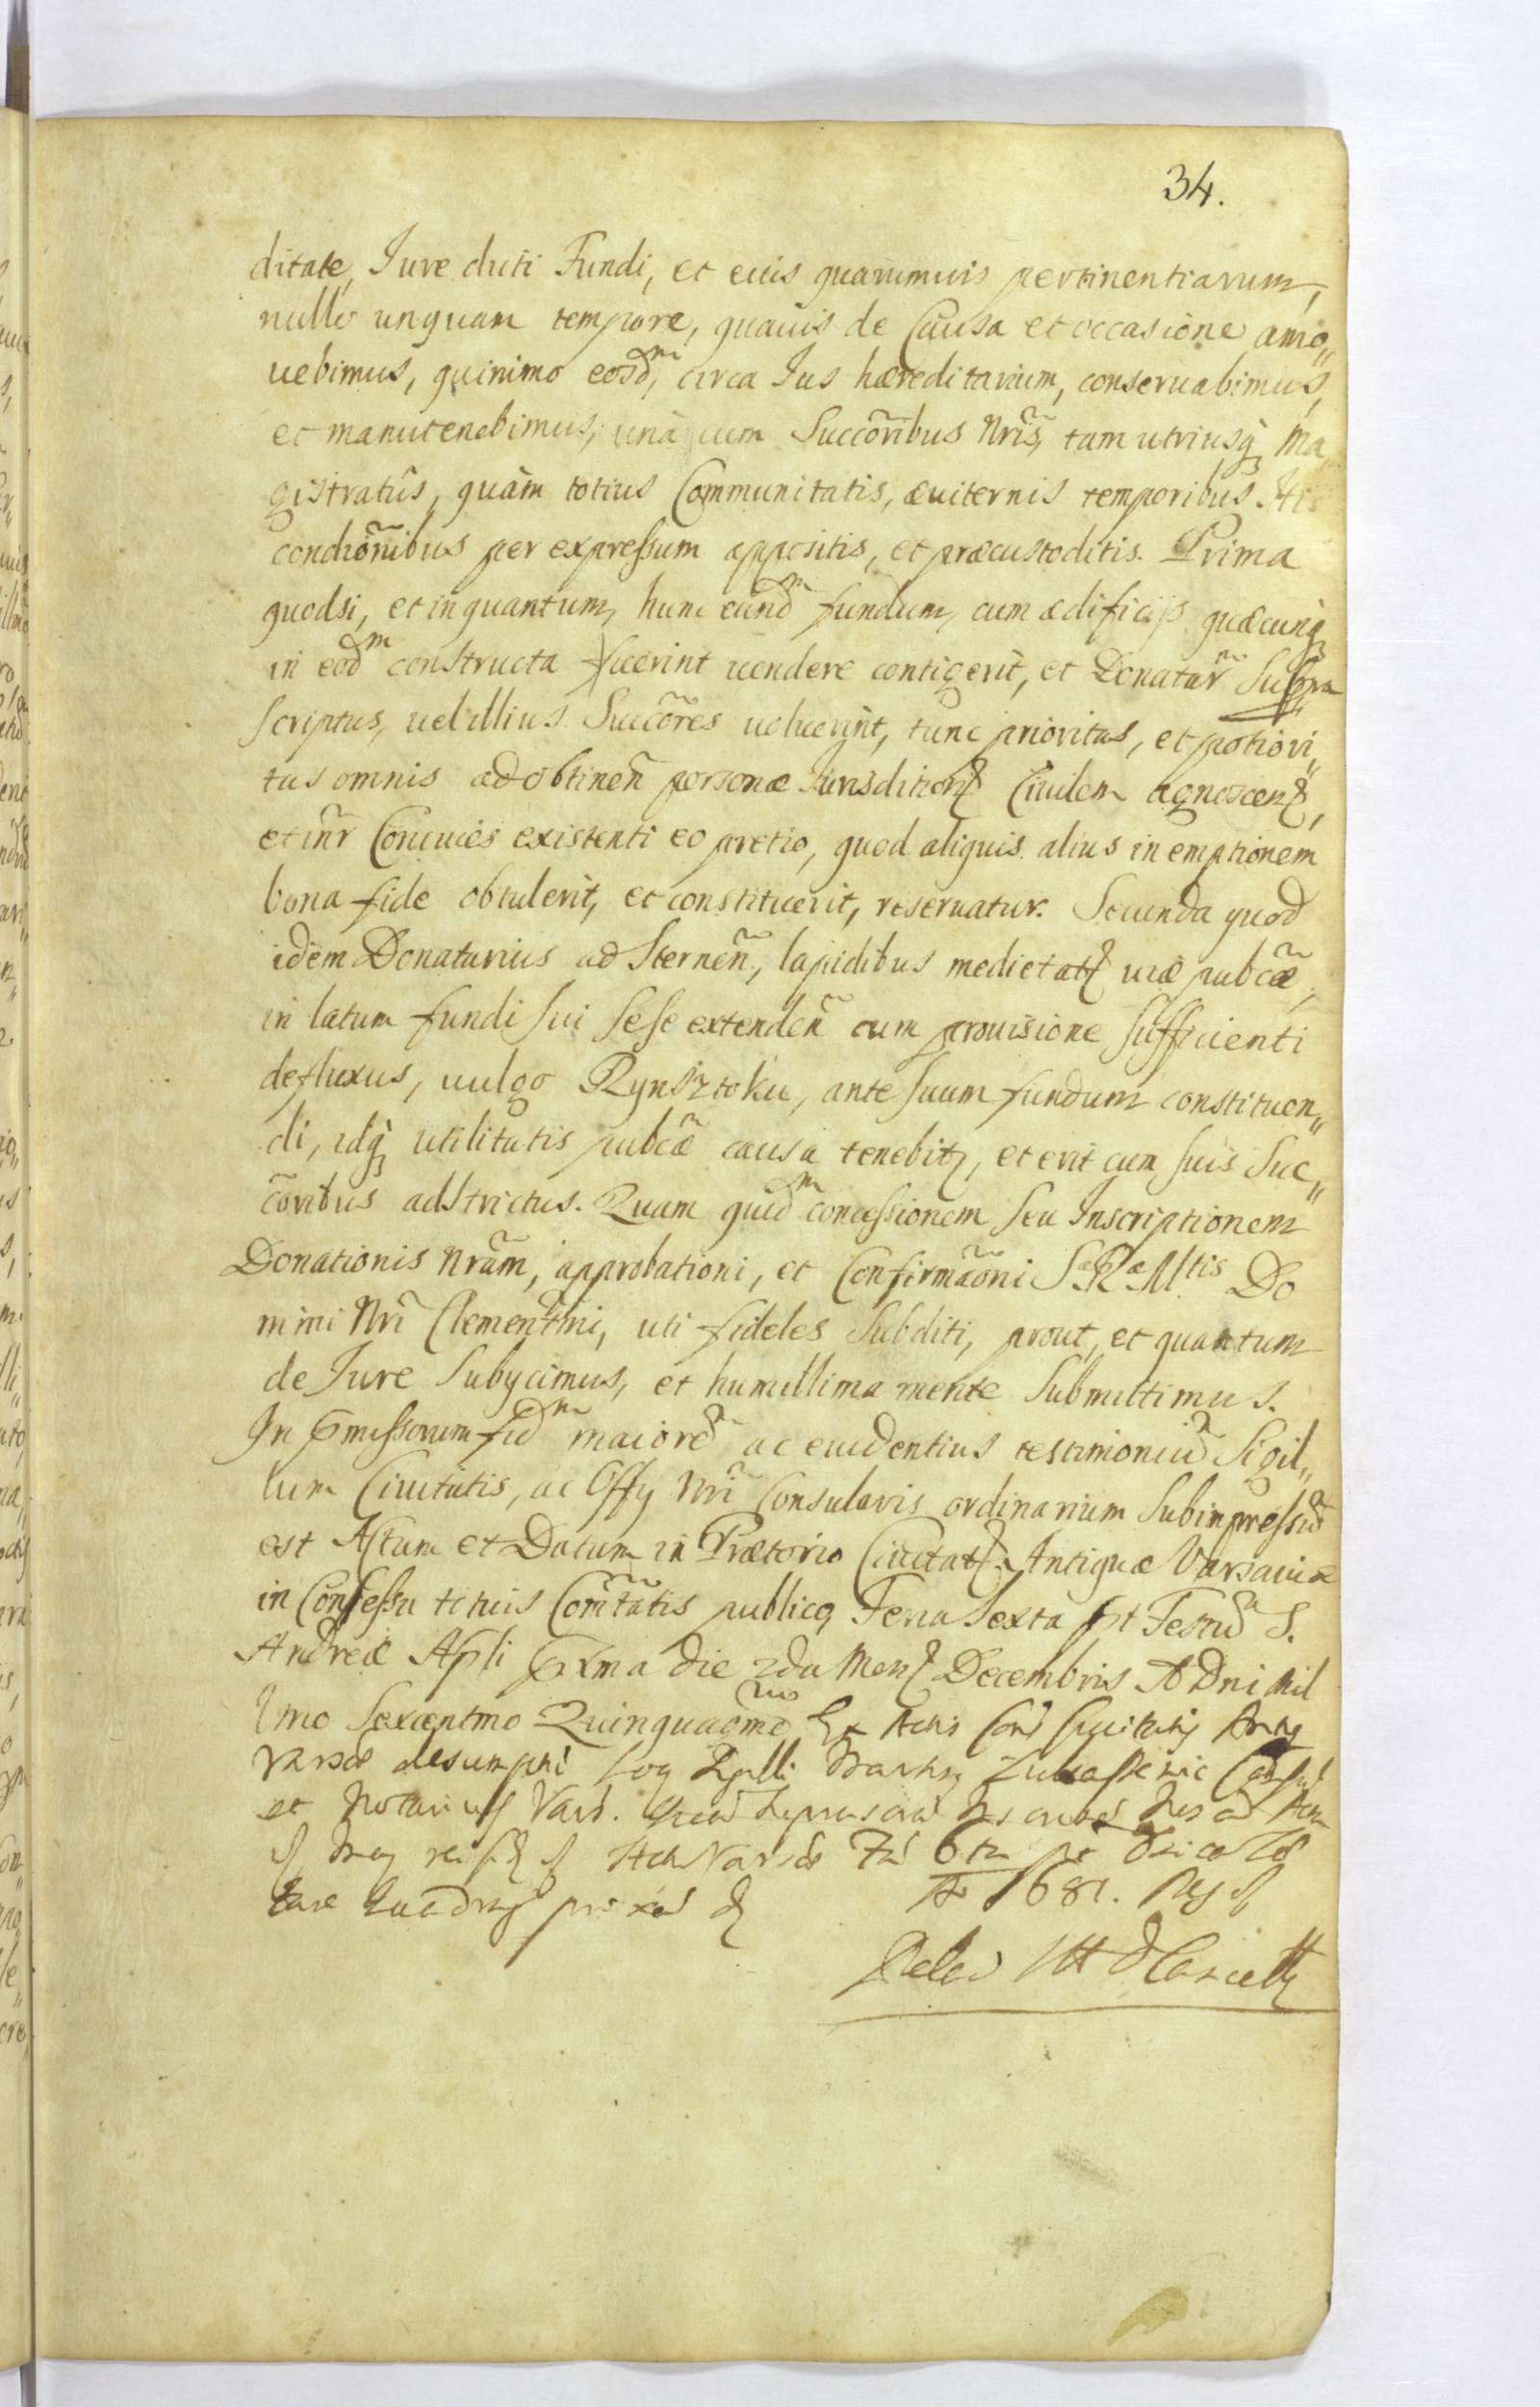 34.
ditate, Jure dicti Fundi, et eius quarumuis pertinentiarum,
nullo unquam tempore, quauis de Causa et occasione amo„
uebimus, quinimo eosdm, circa Jus hæreditarium, conseruabimus,
et manutenebimus, unà cum Succõribus Nr̃is, tam utriusq̧ Ma„
gistratûs, quàm totius Communitatis, æuiternis temporibus. His
condiõnibus per expressum appositis, et præcustoditis. Prima
quodsi, et inquantum, hunc eundm fundum, cum ædificijs quæcunq̧
in eodm constructa fuerint uendere contigerit, et Donatar̃ Supra
scriptus, uel illius Succõres uoluerint, tunc prioritas, et potiori„
tas omnis ad obtinen̄ personæ Jurisditionẽ Ciuilem agnoscenẽ,
et int̃r Conciues existenti eo pretio, quod aliquis alius in emptionem
bona fide obtulerit, et constituerit, reseruatur. Secunda quod
idem Donatarius ad Sternen̄, lapidibus medietatẽ uiæ pubcæ̃,
in latum fundi sui sese extenden̄ cum prouisione sufficienti
defluxus, uulgo Rynsztoku, ante suum fundum constituen„
di, idq̧ utilitatis pubcæ̃ causa tenebitr, et erit cum suis Suc„
cõribus adstrictus. Quam quidm concessionem seu Inscriptionem
Donationis Nr̃am, approbationi, et Confirmãoni S. Ræ Mtis Do
mini Nr̃i Clementmi, uti fideles Subditi, prout, et quantum
de Jure Subycimus, et humillima mente Submittimus.
In p̃missorum fidm maiorẽ ac euidentius testimoniũ Sigil„
lum Ciuitatis, ac Offy Nr̃i Consularis ordinarium Subimpressũ
est Actum et Datum in Prætorio Ciuitatẽ Antiquæ Varsauiæ
in Consessu totius Com̃tatis publico, Feria Sexta pt Festũ S.
Andreæ Apli pxma die 2da Mensẽ Decembris A Dni Mil
lmo Sexcentmo Quinquagmo Ex Actis Ciuitatis Antq
Varsæ desumpt
et Notarius Vars.
6ta
1681.